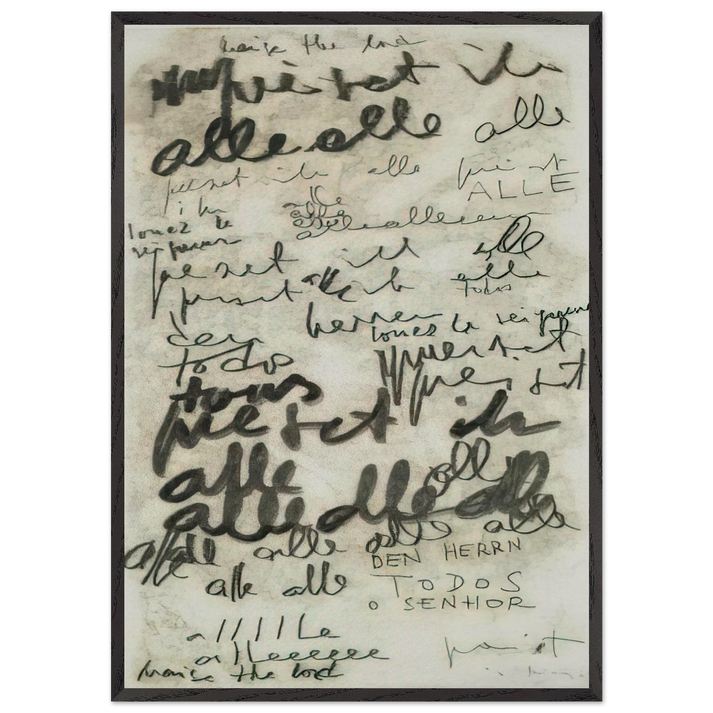 praise the lord
preiset ihn
alle alle alle
preiset ihn alle preiset
ALLE
ihn alle
louez le alle alle
seigneur
preiset ihn alle
alle
preiset alle ihn todos
herren
louez le seigneur
den
todos preiset
tous preiset
preiset ihn
alle alle
alle alle alle
alle alle alle alle
DEN HERRN
alle alle
TODOS
O SENHOR
alllllle
alleeeeee preist
praise the lord